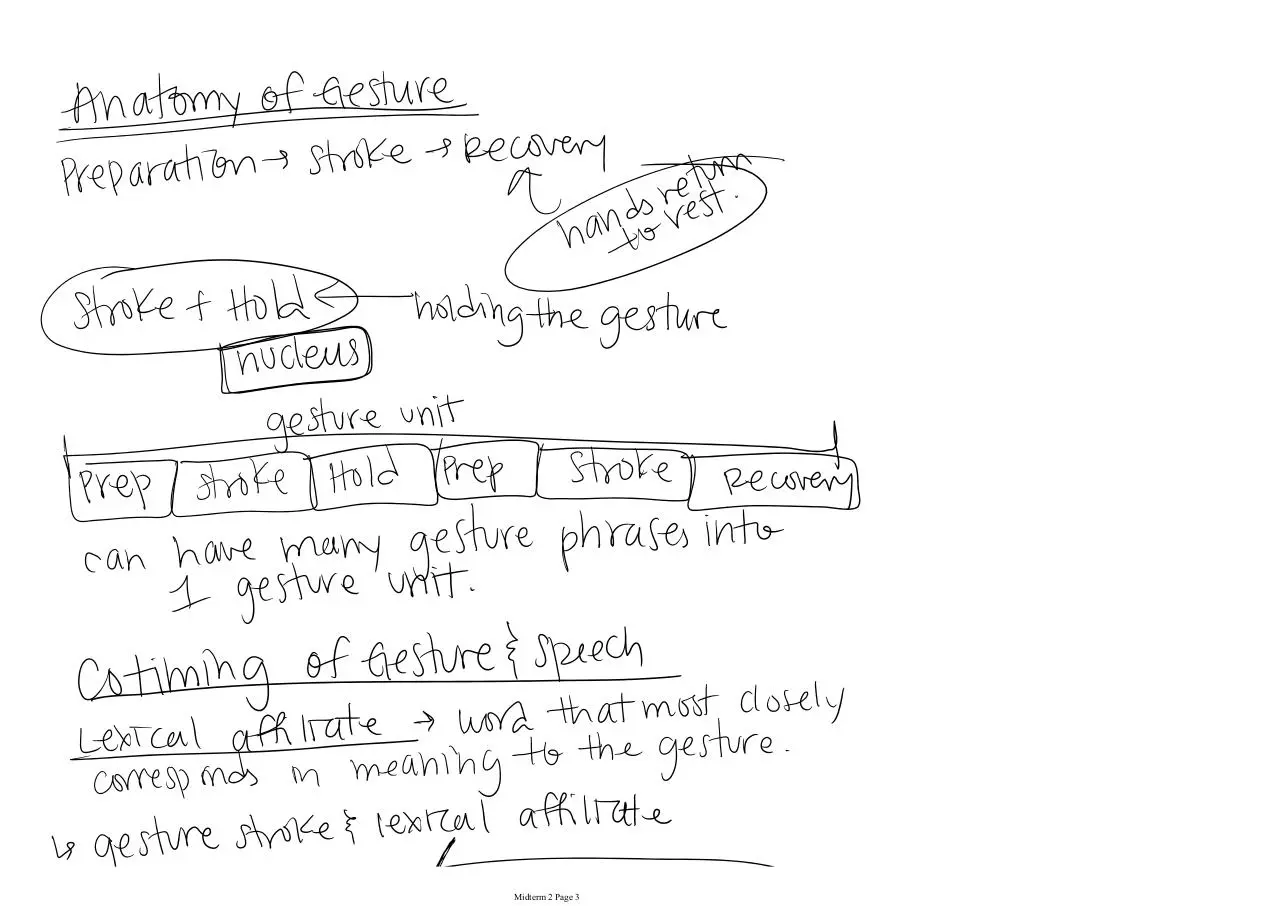 Anatomy of Gesture
Preparation → Stroke → Recovery
hands return
to rest.
Stroke + Hold ← holding the gesture
nucleus
gesture unit
Prep Stroke Hold Prep Stroke Recovery
can have many gesture phrases into
1 gesture unit.
Cotiming of Gesture & Speech
Lexical affiliate → word that most closely
corresponds in meaning to the gesture.
↳ gesture stroke & lexical affiliate
Midterm 2 Page 3